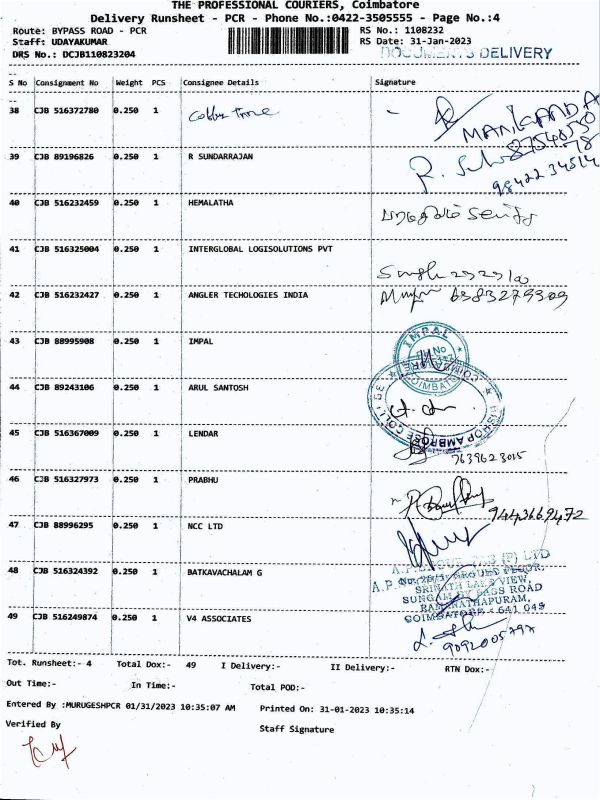 THE PROFESSIONAL COURIERS, Coimbatore
Delivery Runsheet - PCR - Phone No.:0422-3505555 - Page No.:4
Route: BYPASS ROAD - PCR RS No.: 1108232
Staff: UDAYAKUMAR RS Date: 31-Jan-2023
DRS No.: DCJB110823204 DOCUMENTS DELIVERY
S No Consignment No Weight PCS Consignee Details Signature
38 CJB 516372780 0.250 1
39 CJB 89196826 0.250 1 R SUNDARRAJAN
98422 34514
40 CJB 516232459 0.250 1 HEMALATHA
41 CJB 516325004 0.250 1 INTERGLOBAL LOGISOLUTIONS PVT
42 CJB 516232427 0.250 1 ANGLER TECHOLOGIES INDIA
43 CJB 88995908 0.250 1 IMPAL
IMPAL
44 CJB 89243106 0.250 1 ARUL SANTOSH
BISHOP AMBROSE COLLEGE
COIMBATORE
45 CJB 516367009 0.250 1 LENDAR
7639623015
46 CJB 516327973 0.250 1 PRABHU
9443669472
47 CJB 88996295 0.250 1 NCC LTD
48 CJB 516324392 0.250 1 BATKAVACHALAM G
GROUND FLOOR,
SRINATH LAKE VIEW,
SUNGAM BY PASS ROAD
RAMANATHAPURAM,
COIMBATORE - 641 045
49 CJB 516249874 0.250 1 V4 ASSOCIATES
9092005797
Tot. Runsheet:- 4 Total Dox:- 49 I Delivery:- II Delivery:- RTN Dox:-
Out Time:- In Time:- Total POD:-
Entered By :MURUGESHPCR 01/31/2023 10:35:07 AM Printed On: 31-01-2023 10:35:14
Verified By Staff Signature